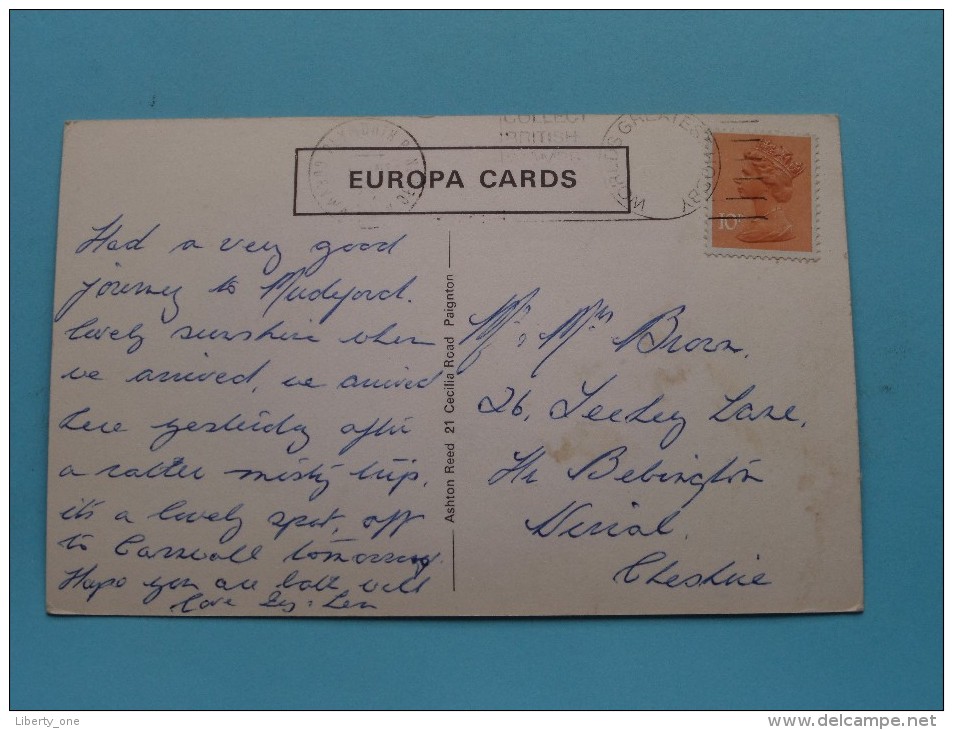 COLLECT
BRITISH
WORLDS GREATEST HOBBY
EUROPA CARDS
10P
Had a very good
journey to Mudeford.
lovely sunshine when
we arrived, we arrived
here yesterday after
a rather misty trip,
it's a lovely spot, off
to Cornwall tomorrow.
Hope you are both well
love Les & Len
Ashton Reed 21 Cecilia Road Paignton
Mr & Mrs Brown,
26, Lane,
Hr Bebington
Wirral.
Cheshire
Liberty_one
www.delcampe.net